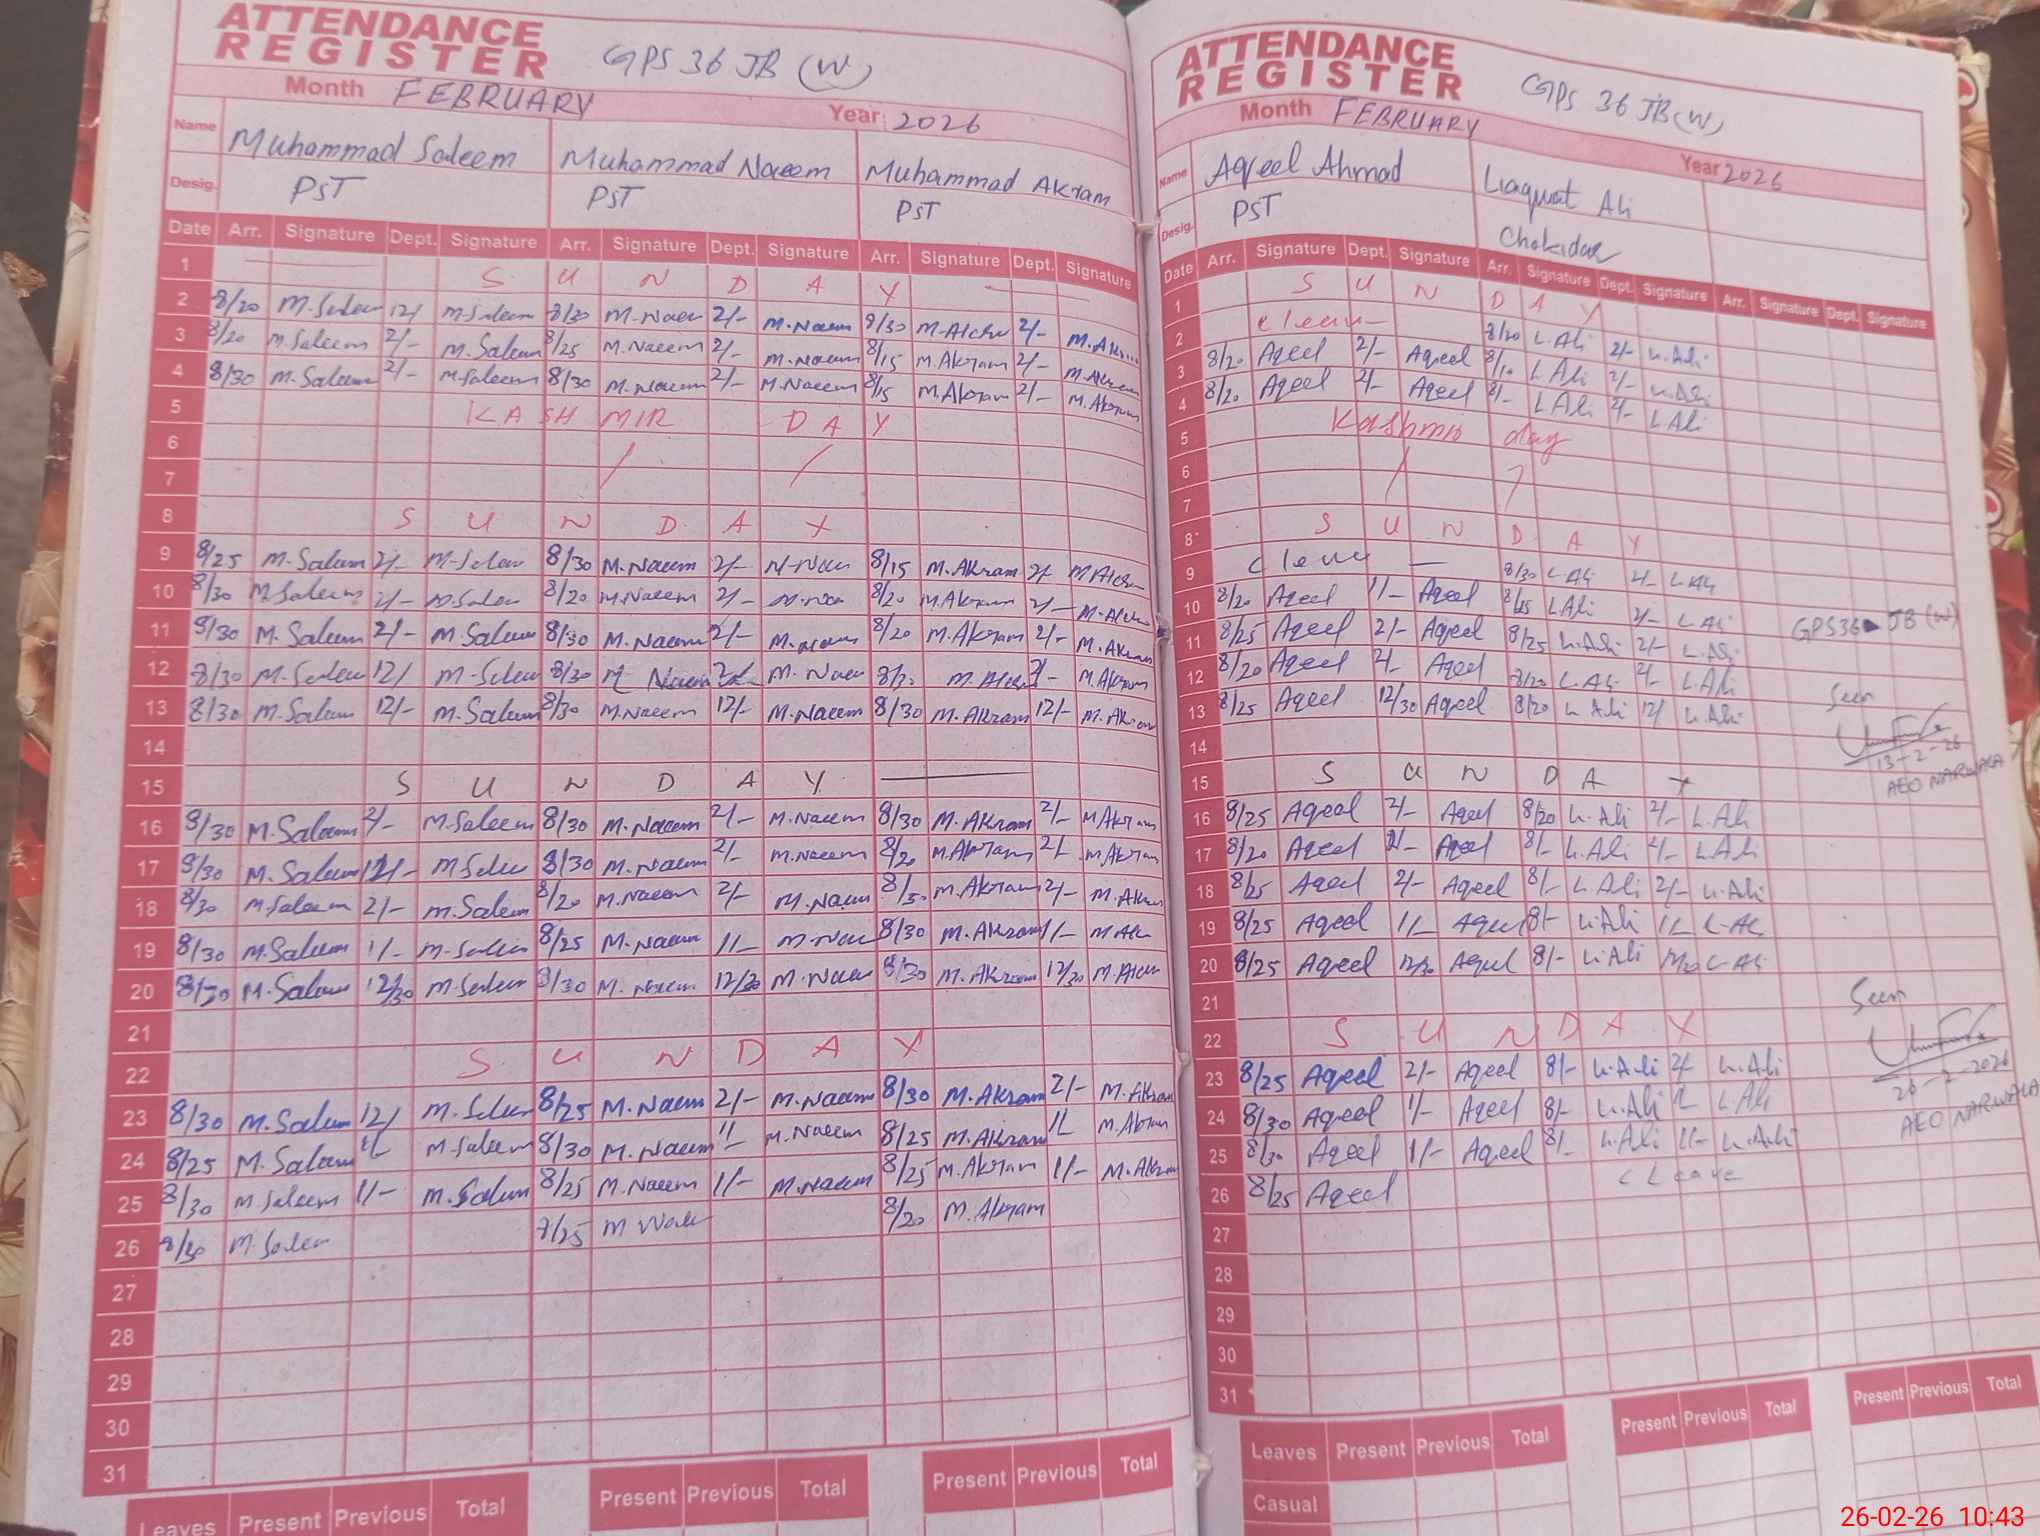 ATTENDANCE
REGISTER GPS 36 JB (W)
Month FEBRUARY Year: 2026
Name Muhammad Saleem Muhammad Naeem Muhammad Akram
Desig. PST PST PST
Date Arr. Signature Dept. Signature Arr. Signature Dept. Signature Arr. Signature Dept. Signature
1 S U N D A Y
2 8/20 M.Saleem 12/ M.Saleem 8/30 M.Naeem 2/- M.Naeem 8/30 2/-
3 8/20 M.Saleem 2/- M.Saleem 8/25 M.Naeem 2/- M.Naeem 8/15 M.Akram 2/- M.Akram
4 8/30 M.Saleem 2/- M.Saleem 8/30 M.Naeem 2/- M.Naeem 8/15 M.Akram 2/- M.Akram
5 KASHMIR DAY
6
7
8 S U N D A Y
9 8/25 M.Saleem 2/- M.Saleem 8/30 M.Naeem 2/- 8/15 M.Akram 2/-
10 8/30 M.Saleem 2/- M.Saleem 8/20 M.Naeem 2/- 8/20 M.Akram 2/-
11 8/30 M.Saleem 2/- M.Saleem 8/30 M.Naeem 2/- M.Naeem 8/20 M.Akram 2/- M.Akram
12 8/30 M.Saleem 12/ M.Saleem 8/30 M.Naeem M.Naeem M.Akram
13 8/30 M.Saleem 12/- M.Saleem 8/30 M.Naeem 12/- M.Naeem 8/30 M.Akram 12/- M.Akram
14
15 S U N D A Y
16 8/30 M.Saleem 2/- M.Saleem 8/30 M.Naeem 2/- M.Naeem 8/30 M.Akram 2/- M.Akram
17 8/30 M.Saleem M.Saleem 8/30 M.Naeem 2/- M.Naeem 8/20 M.Akram 2/- M.Akram
18 8/30 M.Saleem 2/- M.Saleem 8/20 M.Naeem 2/- M.Naeem M.Akram 2/- M.Akram
19 8/30 M.Saleem 1/- M.Saleem 8/25 M.Naeem 1/- 8/30 M.Akram 1/-
20 8/30 M.Saleem 12/30 M.Saleem 8/30 M.Naeem 12/30 M.Naeem 8/30 M.Akram 12/30
21
22 S U N D A Y
23 8/30 M.Saleem 12/ M.Saleem 8/25 M.Naeem 2/- M.Naeem 8/30 M.Akram 2/- M.Akram
24 8/25 M.Saleem M.Saleem 8/30 M.Naeem 1/- M.Naeem 8/25 M.Akram 1/- M.Akram
25 8/30 M.Saleem 1/- M.Saleem 8/25 M.Naeem 1/- M.Naeem 8/25 M.Akram 1/- M.Akram
26 8/30 M.Saleem 8/20 M.Akram
27
28
29
30
31
Leaves Present Previous Total Present Previous Total Present Previous Total
ATTENDANCE
REGISTER GPS 36 JB (W)
Month FEBRUARY Year 2026
Name Aqeel Ahmad Liaquat Ali
Desig. PST Chokidar
Date Arr. Signature Dept. Signature Arr. Signature Dept. Signature Arr. Signature Dept. Signature
1 S U N D A Y
2 8/20 L.Ali 2/- L.Ali
3 8/20 Aqeel 2/- Aqeel 8/10 L.Ali 2/- L.Ali
4 8/20 Aqeel 2/- Aqeel 8/- L.Ali 2/- L.Ali
5 Kashmir day
6
7
8 S U N D A Y
9 8/30 L.Ali 2/- L.Ali
10 8/20 Aqeel 1/- Aqeel L.Ali 2/- L.Ali
GPS 36 JB (W)
11 8/25 Aqeel 2/- Aqeel 8/25 L.Ali 2/- L.Ali
12 8/20 Aqeel 2/- Aqeel 8/20 L.Ali 2/- L.Ali
13 8/25 Aqeel 12/30 Aqeel 8/20 L.Ali 12/ L.Ali
Seen
14
13-2-26
AEO NARWALA
15 S U N D A Y
16 8/25 Aqeel 2/- Aqeel 8/20 L.Ali 2/- L.Ali
17 8/20 Aqeel 2/- Aqeel 8/- L.Ali 2/- L.Ali
18 8/25 Aqeel 2/- Aqeel 8/- L.Ali 2/- L.Ali
19 8/25 Aqeel 1/- Aqeel 8/- L.Ali 1/- L.Ali
20 8/25 Aqeel 12/30 Aqeel 8/- L.Ali L.Ali
21
Seen
22 S U N D A Y
23 8/25 Aqeel 2/- Aqeel 8/- L.Ali 2/- L.Ali
26-2-2026
AEO NARWALA
24 8/30 Aqeel 1/- Aqeel 8/- L.Ali L.Ali
25 8/30 Aqeel 1/- Aqeel 8/- L.Ali 1/- L.Ali
26 8/25 Aqeel C Leave
27
28
29
30
31
Leaves Present Previous Total Present Previous Total Present Previous Total
Casual
26-02-26 10:43